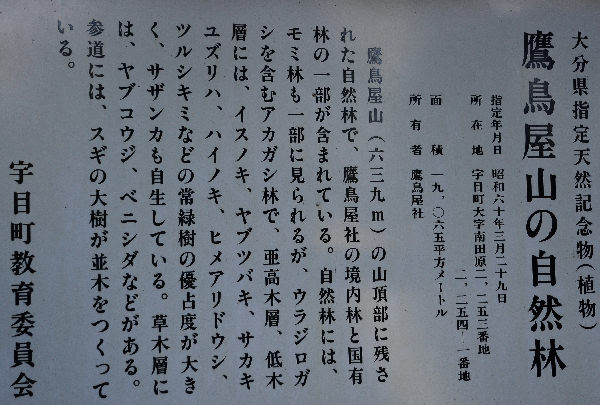 大分県指定天然記念物(植物)
鷹鳥屋山の自然林
指定年月日 昭和六十年三月二十九日
所在地 宇目町大字南田原二、二五三番地
二、二五四ー一番地
面積 一九、〇六五平方メートル
所有者 鷹鳥屋社
鷹鳥屋山(六三九m)の山頂部に残さ
れた自然林で、鷹鳥屋社の境内林と国有
林の一部が含まれている。自然林には、
モミ林も一部に見られるが、ウラジロガ
シを含むアカガシ林で、亜高木層、低木
層には、イスノキ、ヤブツバキ、サカキ
ユズリハ、ハイノキ、ヒメアリドウシ、
ツルシキミなどの常緑樹の優占度が大き
く、サザンカも自生している。草木層に
は、ヤブコウジ、ベニシダなどがある。
参道には、スギの大樹が並木をつくって
いる。
宇目町教育委員会